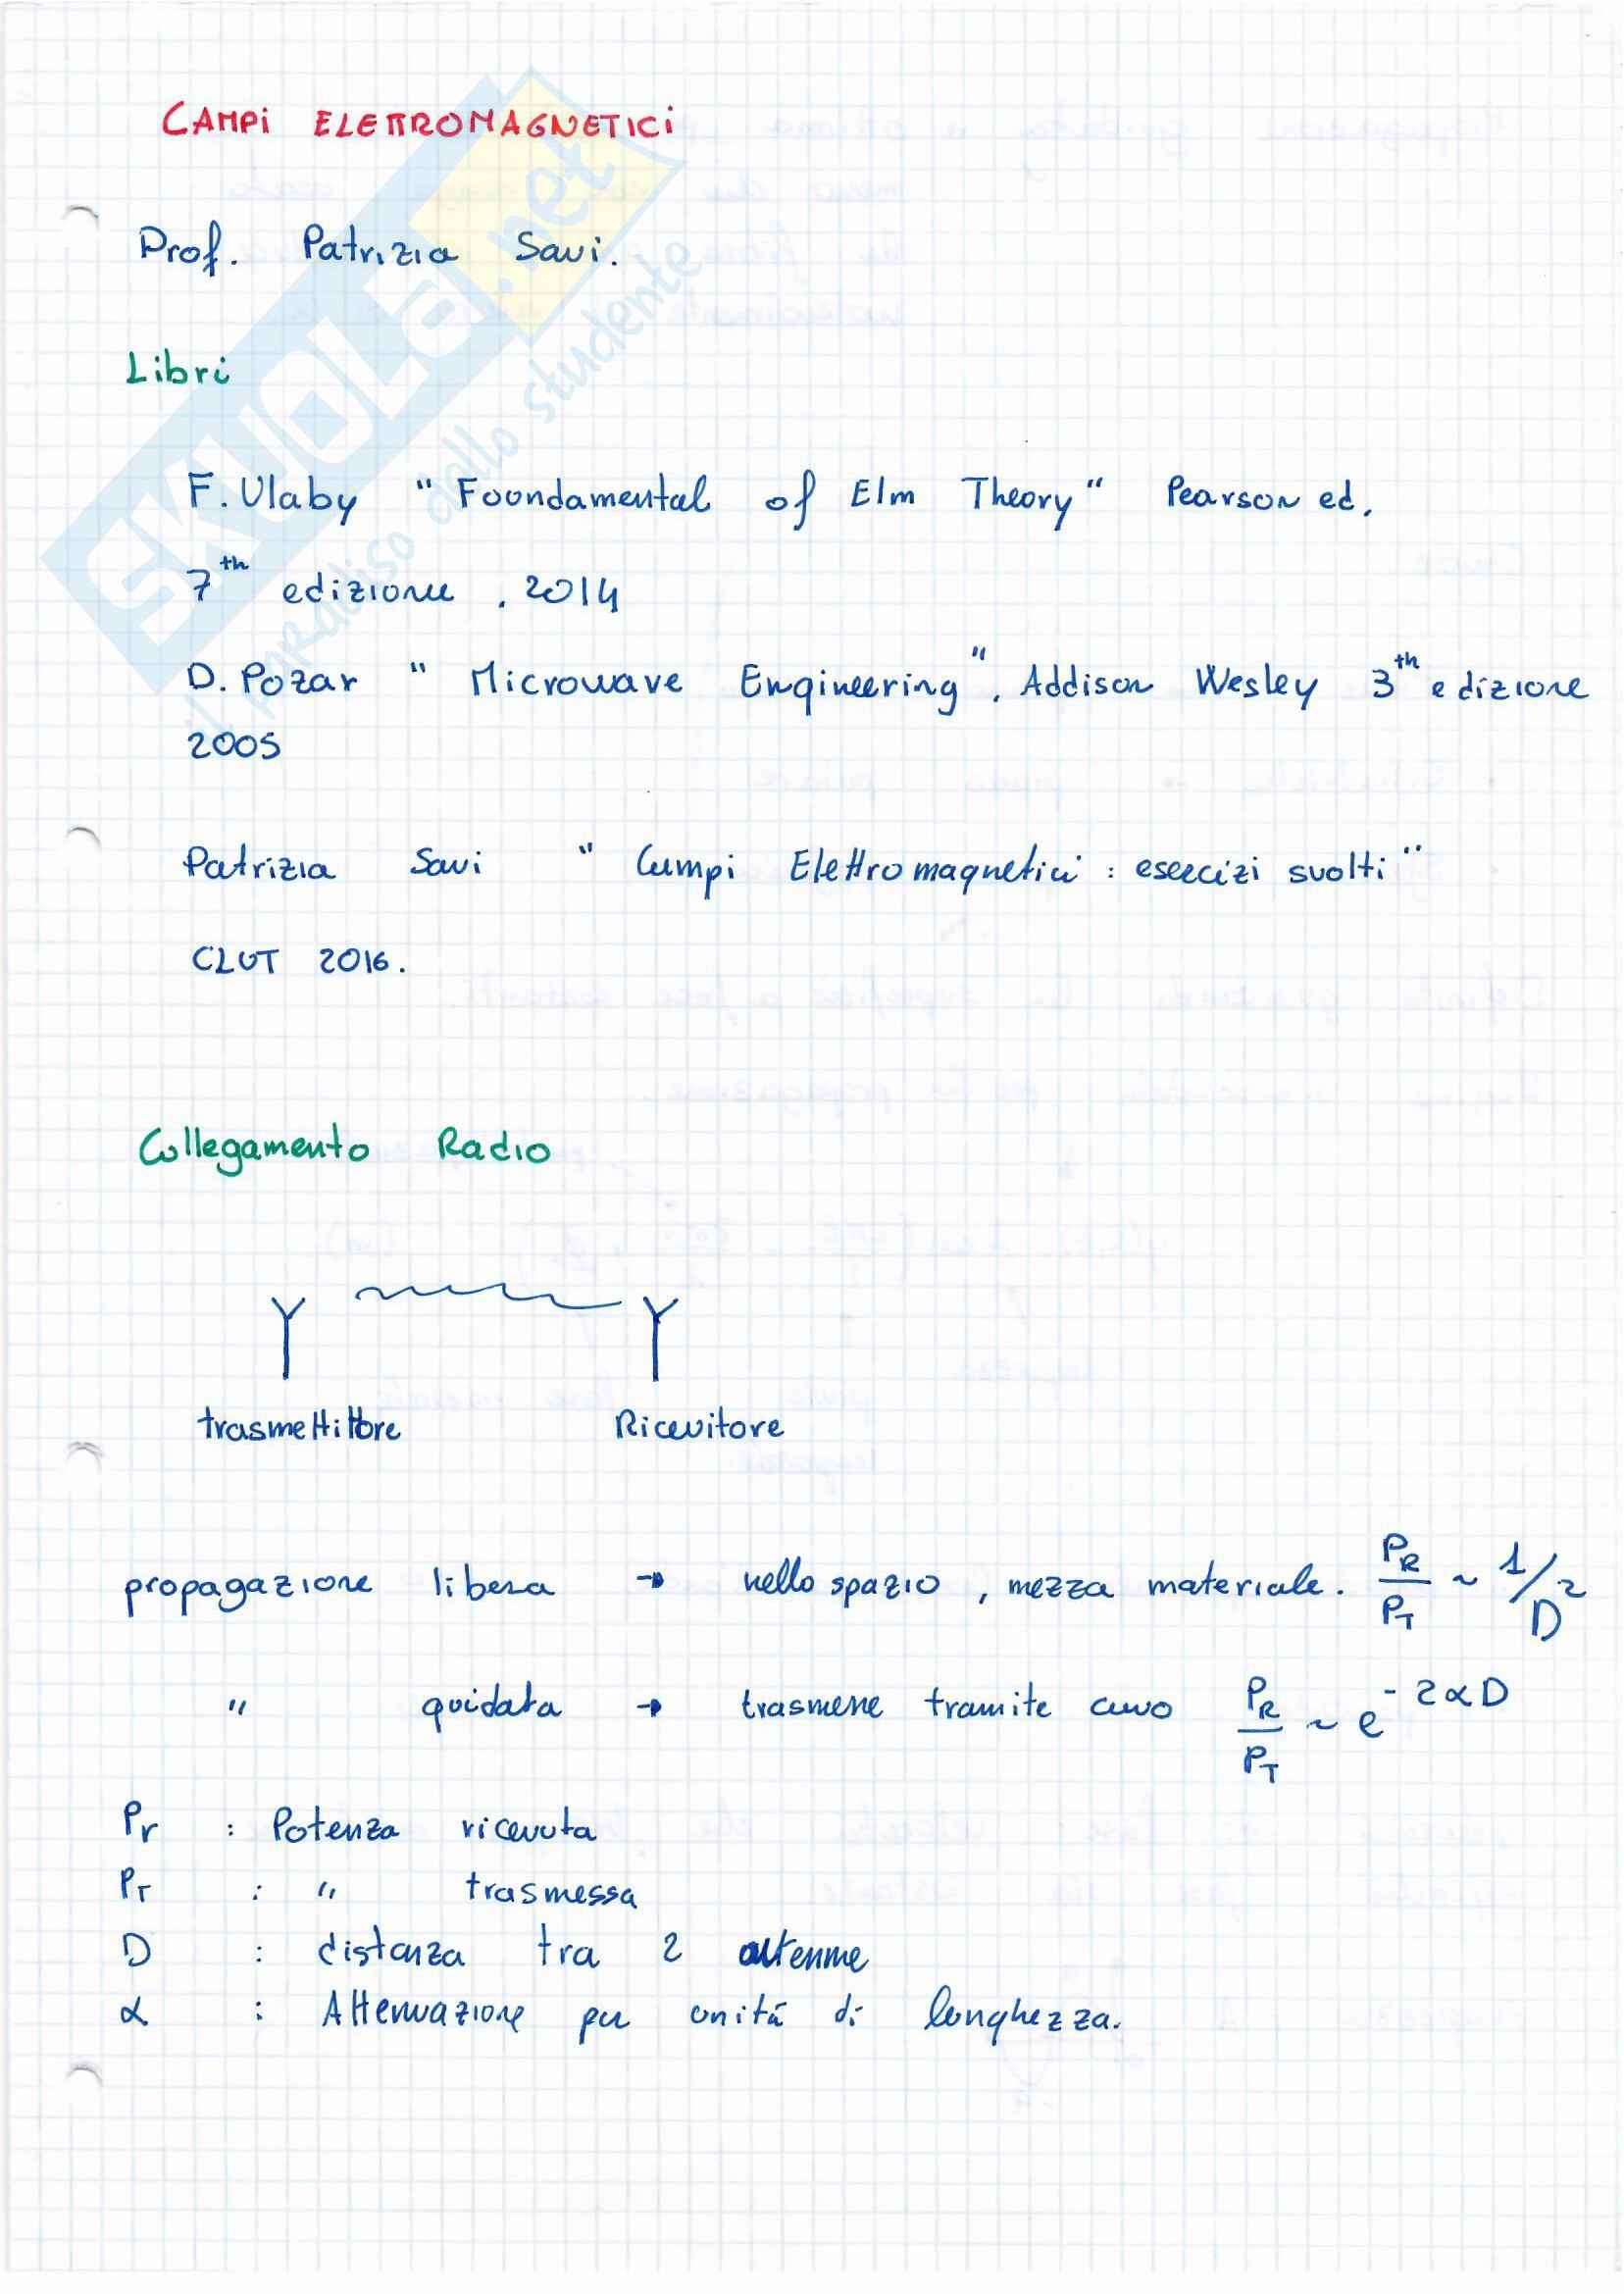 CAMPi ELETTROMAGNETICi
Prof. Patrizia Savi.
Libri
F. Ulaby " Foondamental of Elm Theory " Pearson ed.
7th edizione . 2014
D. Pozar " Microwave Engineering ". Addison Wesley 3th edizione
2005
Patrizia Savi " Campi Elettromagnetici : esercizi svolti "
CLUT 2016.
Collegamento Radio
trasmettittore Ricevitore
propagazione libera → nello spazio , mezza materiale. PR/PT ~ 1/D²
" guidata → trasmene tramite cavo PR/PT ~ e^-2αD
Pr : Potenza ricevuta
PT : " trasmessa
D : distanza tra 2 antenne
α : Attenuazione per unitá di lunghezza.
SKUOLA.net
il paradiso dello studente